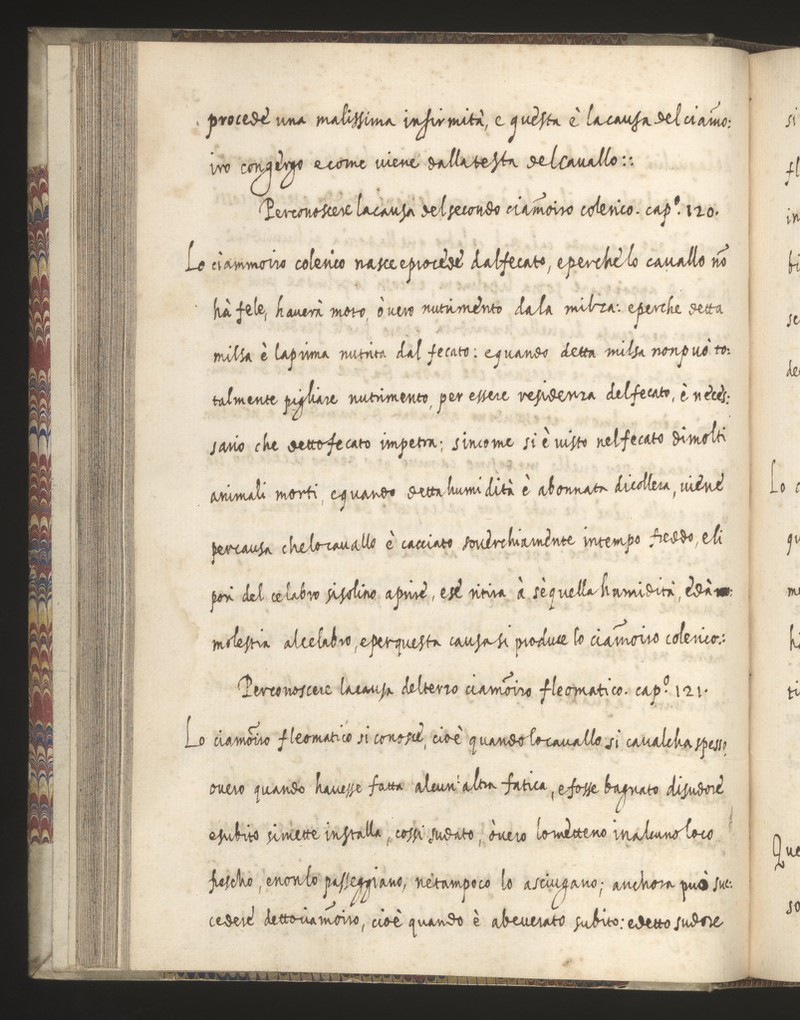 procede una malissima infirmità, e questa è la causa del ciam̃o:
iro congergo e come viene dalla testa del Cauallo::
Per conoscere la causa del secondo ciam̃oiro colerico. cap.º 120.
Lo ciammoiro colerico nasce e procede dal fecato, e perche lo cauallo nõ
hà fele, hauerà moto, ò uero nutrimento dala milza: e perche detta
milsa è la prima nutrita dal fecato: e quando detta milsa non può to:
talmente pigliare nutrimento, per essere residenza del fecato, è neces:
sario che detto fecato impetra; sincome si è uisto nel fecato di molti
animali morti, e quando detta humidità è abonnata di collera, uiene
per causa che lo cauallo è cacciato souerchiamente in tempo freddo, e li
pori del celabro si solino aprire, e se ritira à sè quella humidità, e dà
molestia al celabro, e per questa causa si produce lo ciam̃oiro colerico::
Per conoscere la causa del terzo ciam̃oiro fleomatico. cap.º 121.
Lo ciam̃oiro fleomatico si conosce, cioè quando lo cauallo si caualcha spesso,
ouero quando hauesse fatta alcun' altra fatica, e fosse bagnato di sudore
e subito si mette in stalla, cossi sudato, òuero lo metteno in alcuno loco
frescho, e non lo passeggiano, ne tampoco lo asciugano; anchora può suc:
cedere detto ciam̃oiro, cioè quando è abeuerato subito: e detto sudore